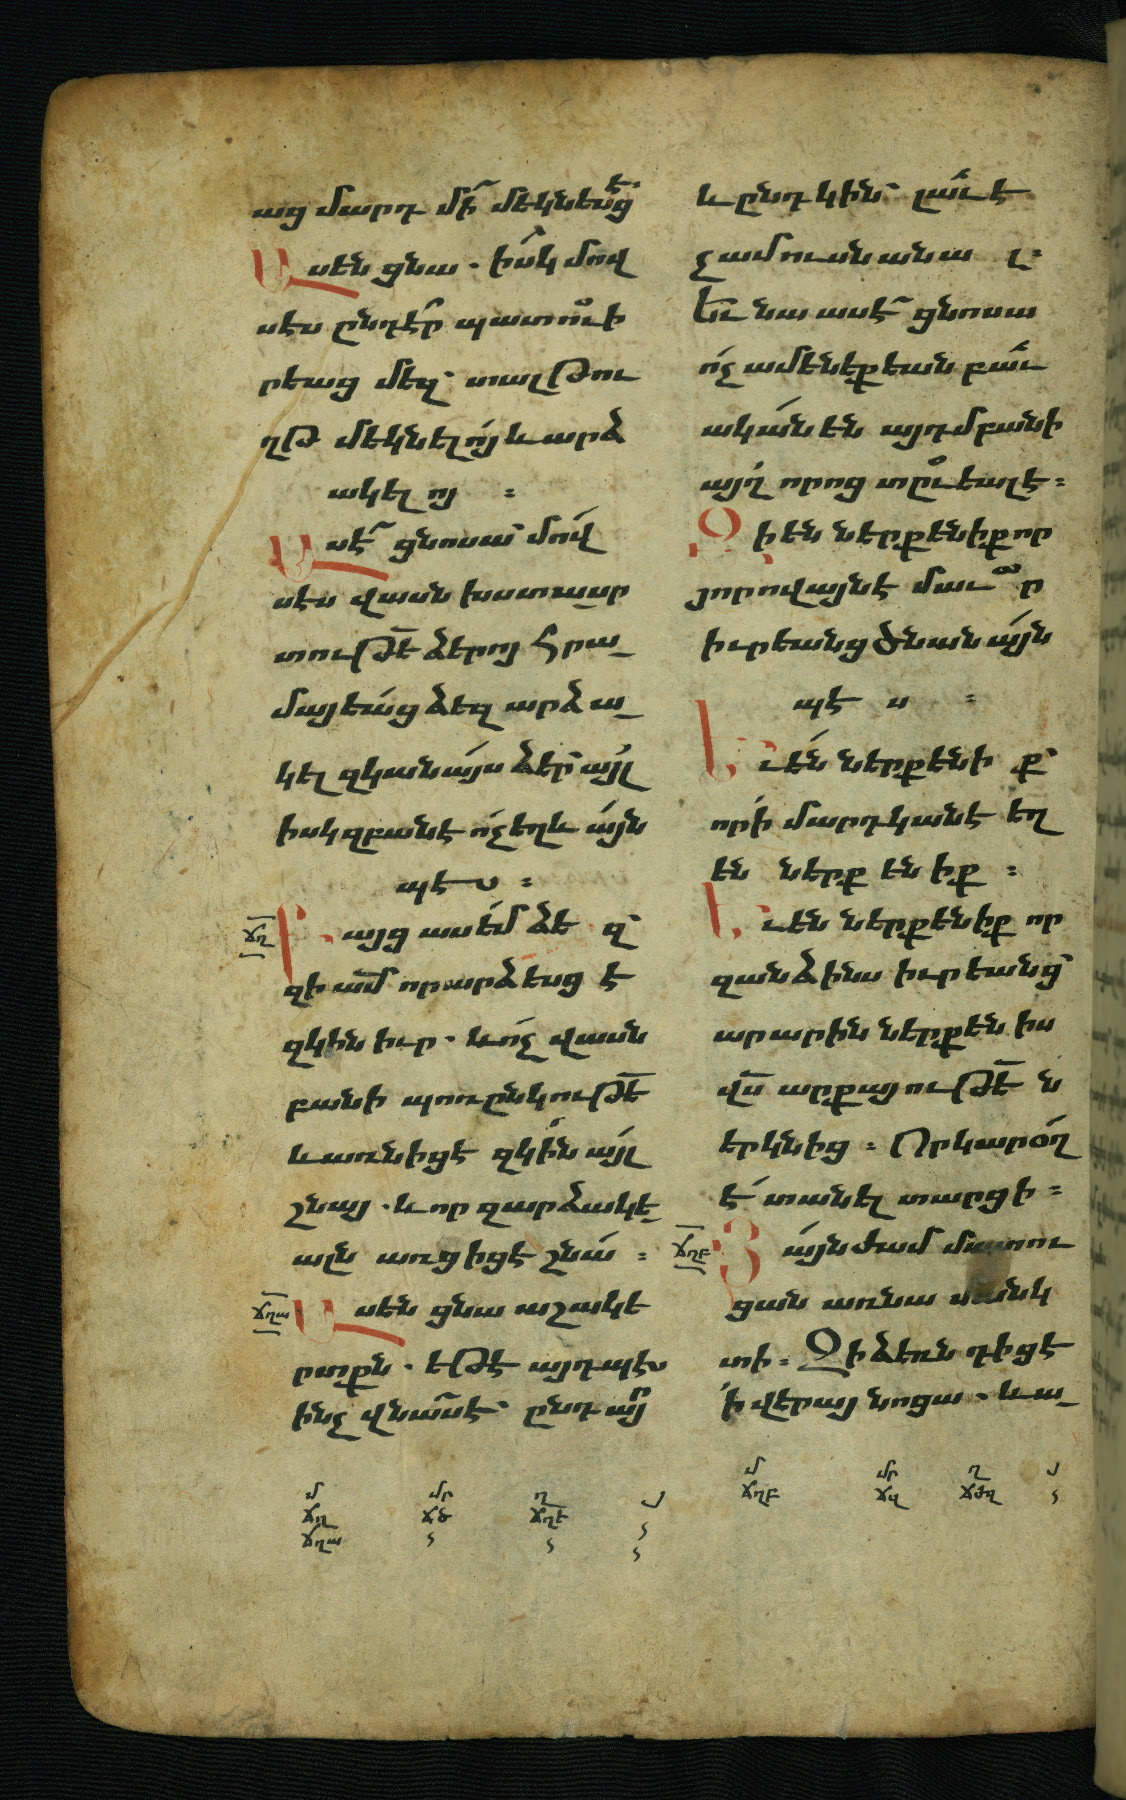 աց մարդ մի մեկնեսցէ։
Ասեն ցնա. իսկ մով
սէս ընդէր պատուի
րեաց մեզ տալ թու
ղթ մեկնելոյ և արձ
ակել ոյ :
Ասէ ցնոսա մով
սէս վասն խստասր
տութե ձերոյ հրա_
մայեաց ձեզ արձա_
կել զկանայս ձեր այլ
իսկզբանէ ոչ եղև այն
պէս :
ՃՂ Բայց ասեմ ձե զ
զի ամ որ արձեսց է
զկին իւր. և ոչ վասն
բանի պոռընկութե
և առնիցէ զկին այլ
շնայ. և որ զարձակէ_
ալն առցիցէ շնա :
ՃՂԱ Ասեն ցնա աշակե
րտքն. եթէ այդպէս
ինչ վնաս է ընդ այր
և ընդ կին լաւ է
չամուսնանա լ:
Եւ նա ասէ ցնոսա
ոչ ամենեքեան բաւ
ական են այդմ բանի
այղ որոց տըւեալ է:
Զի են ներքենիք որ
յորովայնէ մաւր
իւրեանց ծնան այն
պէ ս :
Եւ են ներքենի ք
որ ի մարդկանէ եղ
են ներք են իք :
Եւ են ներքենիք որ
զանձինս իւրեանց
արարին ներքեն իս
վս արքայութե ն
երկնից : Որ կարօղ
է տանել տարցի :
ՃՂԲ Յայնժամ մատու
ցան առնա մանկ
տի : Զի ձեռն դիցէ
ի վերայ նոցա. և ա_
մ մր ղ յ
ՃՂ ՃԾ ՃՂԵ
ՃՂԱ
մ մր ղ յ
ՃՂԲ ՃԶ ՃԺԶ